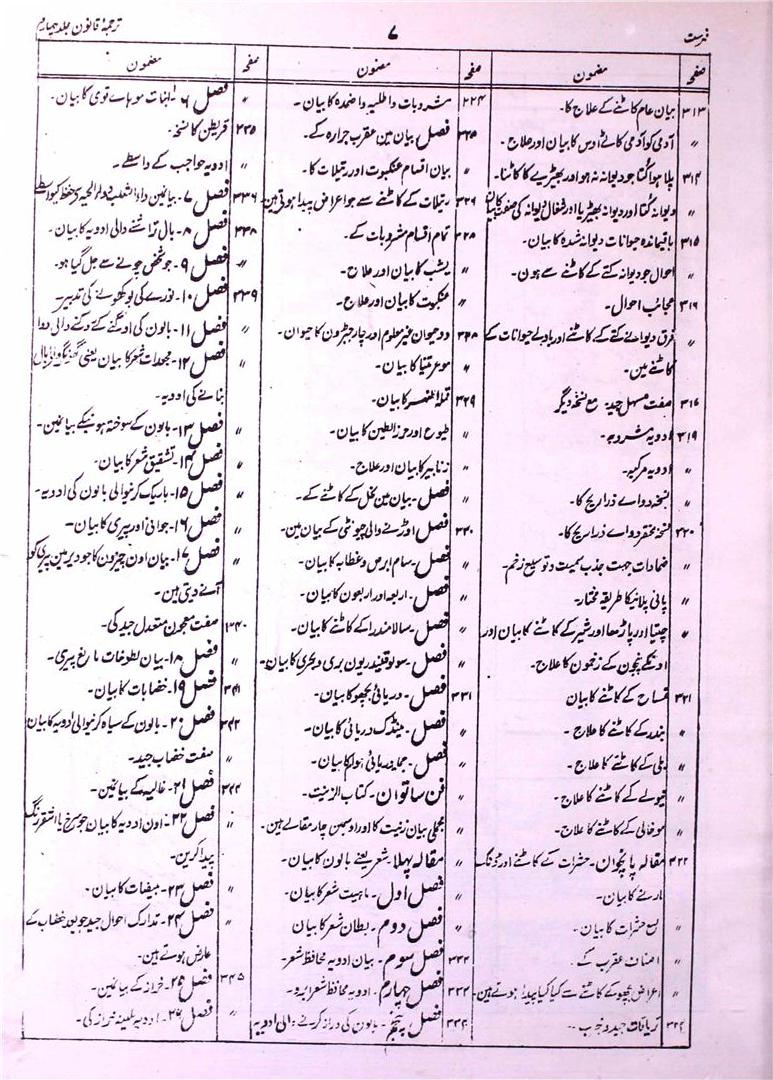 فہرست
۷
ترجمۂ قانون جلد چہارم
صفحہ
مضمون
صفحہ
مضمون
صفحہ
مضمون
۳۱۳ بیان عام کاٹنے کے علاج کا۔
〃 آدمی کو آدمی کاٹے اوس کا بیان اور علاج۔
۳۱۴ پلا ہوا کُتا جو دیوانہ نہ ہو اور بھیڑیے کا کاٹنا۔
〃 دیوانہ کُتا اور دیوانہ بھیڑیا اور شغال دیوانہ کی صفت کا بیان
۳۱۵ باقیماندہ حیوانات دیوانہ شدہ کا بیان۔
〃 احوال جو دیوانہ کتے کے کاٹنے سے ہون۔
۳۱۶ عجائب احوال۔
〃 فرق دیوانے کتے کے کاٹنے اور باولے حیوانات کے
کاٹنے مین۔
۳۱۷ صفت مسہل جید۔ مع نسخہ دیگر
۳۱۹ ادویہ مشروبہ۔
〃 ادویہ مرکبہ۔
〃 نسخہ دواے ذراریح کا۔
۳۲۰ نسخہ مختصر دواے ذراریح کا۔
〃 ضمادات جہت جذب سمیت و توسیع زخم۔
〃 پانی پلانیکا طریقہ مختار۔
〃 چیتیا اور پاڑھا اور شیر کے کاٹنے کا بیان اور
اونکے پنجون کے زخمون کا علاج۔
۳۲۱ تمساح کے کاٹنے کا بیان
〃 بندر کے کاٹنے کا علاج۔
〃 بلی کے کاٹنے کا علاج۔
〃 نیولے کے کاٹنے کا علاج۔
〃 موغالی کے کاٹنے کا علاج۔
۳۲۲ مقالہ پانچوان۔ حشرات کے کاٹنے اور ڈنگ
مارنے کا بیان۔
〃 لسع حشرات کا بیان۔
〃 اصناف عقرب کے۔
〃 اعراض بچھو کے کاٹنے سے کیا کیا پیدا ہوتے ہین۔
۳۲۴ تریاقات جید و مجرب۔
۲۲۴ مشروبات و اطلیہ و اضمدہ کا بیان۔
۳۲۵ فصل بیان مین عقرب جرارہ کے۔
〃 بیان اقسام عنکبوت اور رتیلات کا۔
۳۲۶ رتیلات کے کاٹنے سے جو اعراض پیدا ہوتی ہین
۳۲۸ تمام اقسام مشروبات کے۔
〃 یشب کا بیان اور علاج۔
〃 عنکبوت کا بیان اور علاج۔
۳۲۸ دو حیوان غیر معلوم اور چار جبڑون کا حیوان۔
〃 کا بیان۔
۳۲۹ قملۃ النسر کا بیان۔
〃 طبوع اور حرز الطین کا بیان۔
〃 زنابیر کا بیان اور علاج۔
〃 فصل۔ بیان مین نحل کے کاٹنے کے۔
۳۳۰ فصل اوڑنے والی چیونٹی کے بیان مین۔
〃 فصل۔ سام ابرص و عظایہ کا بیان۔
〃 فصل۔ اربعہ اور اربعون کا بیان۔
〃 فصل۔ سالامندرا کے کاٹنے کا بیان۔
〃 فصل۔ سولوقندریون بری و بحری کا بیان۔
۳۳۱ فصل۔ دریائی بچھو کا بیان۔
〃 فصل۔ مینڈک دریائی کا بیان۔
〃 فصل۔ دریائی ہوام کا بیان۔
〃 فن ساتوان۔ کتاب الزینت۔
〃 مجملی بیان زینت کا اور اوسمین چار مقالے ہین۔
〃 مقالہ پہلا۔ شعر یعنے بالون کا بیان۔
〃 فصل اول۔ ماہیت شعر کا بیان۔
〃 فصل دوم۔ بطلان شعر کا بیان
۳۳۲ فصل سوم۔ بیان ادویہ محافظ شعر۔
۳۳۳ فصل چہارم۔ ادویہ محافظ شعر ابرو۔
۳۳۴ فصل پنجم۔ بالون کی دراز کرنے والی ادویہ
〃 فصل ۶۔ انبات موہاے قوی کا بیان۔
۳۳۵ قریطن کا نسخہ۔
〃 ادویہ حواجب کے واسطے۔
۳۳۶ فصل ۷۔ بیانمین داء الثعلب و داء الحیہ
۳۳۸ فصل ۸۔ بال تراشنے والی ادویہ کا بیان۔
〃 فصل ۹۔ جو شخص چونے سے جل گیا ہو۔
۳۳۹ فصل ۱۰۔ نورے کی بو کھونے کی تدبیر۔
〃 فصل ۱۱۔ بالون کی اوگنے کے روکنے والی دوا
〃 فصل ۱۲۔ مجعدات شعر کا بیان یعنی گھونگھر والے بال
بنانے کی ادویہ۔
〃 فصل ۱۳۔ بالون کے سوختہ ہونیکے بیانمین۔
〃 فصل ۱۴۔ تشقیق شعر کا بیان۔
〃 فصل ۱۵۔ باریک کرنیوالی بالون کی ادویہ۔
〃 فصل ۱۶۔ جوانی اور پیری کا بیان۔
〃 فصل ۱۷۔ بیان اون چیزون کا جو دیر مین پیری کو
آنے دیتی ہین۔
۳۴۰ صفت معجون معتدل جید کی۔
〃 فصل ۱۸۔ بیان لطوخات مانع پیری۔
۳۴۱ فصل ۱۹۔ خضابات کا بیان۔
۳۴۲ فصل ۲۰۔ بالون کے سیاہ کرنیوالی ادویہ کا بیان
صفت خضاب جید۔
۳۴۴ فصل ۲۱۔ غالیہ کے بیانمین۔
〃 فصل ۲۲۔ اون ادویہ کا بیان جو سرخ یا اشقر رنگ
پیدا کرین۔
〃 فصل ۲۳۔ مبیضات کا بیان۔
〃 فصل ۲۴۔ تدارک احوال جید جو بعد خضاب کے
عارض ہوتے ہین۔
۳۴۵ فصل ۲۵۔ حزاز کے بیانمین۔
〃 فصل ۲۶۔ ادویہ ملینہ حزاز کی۔